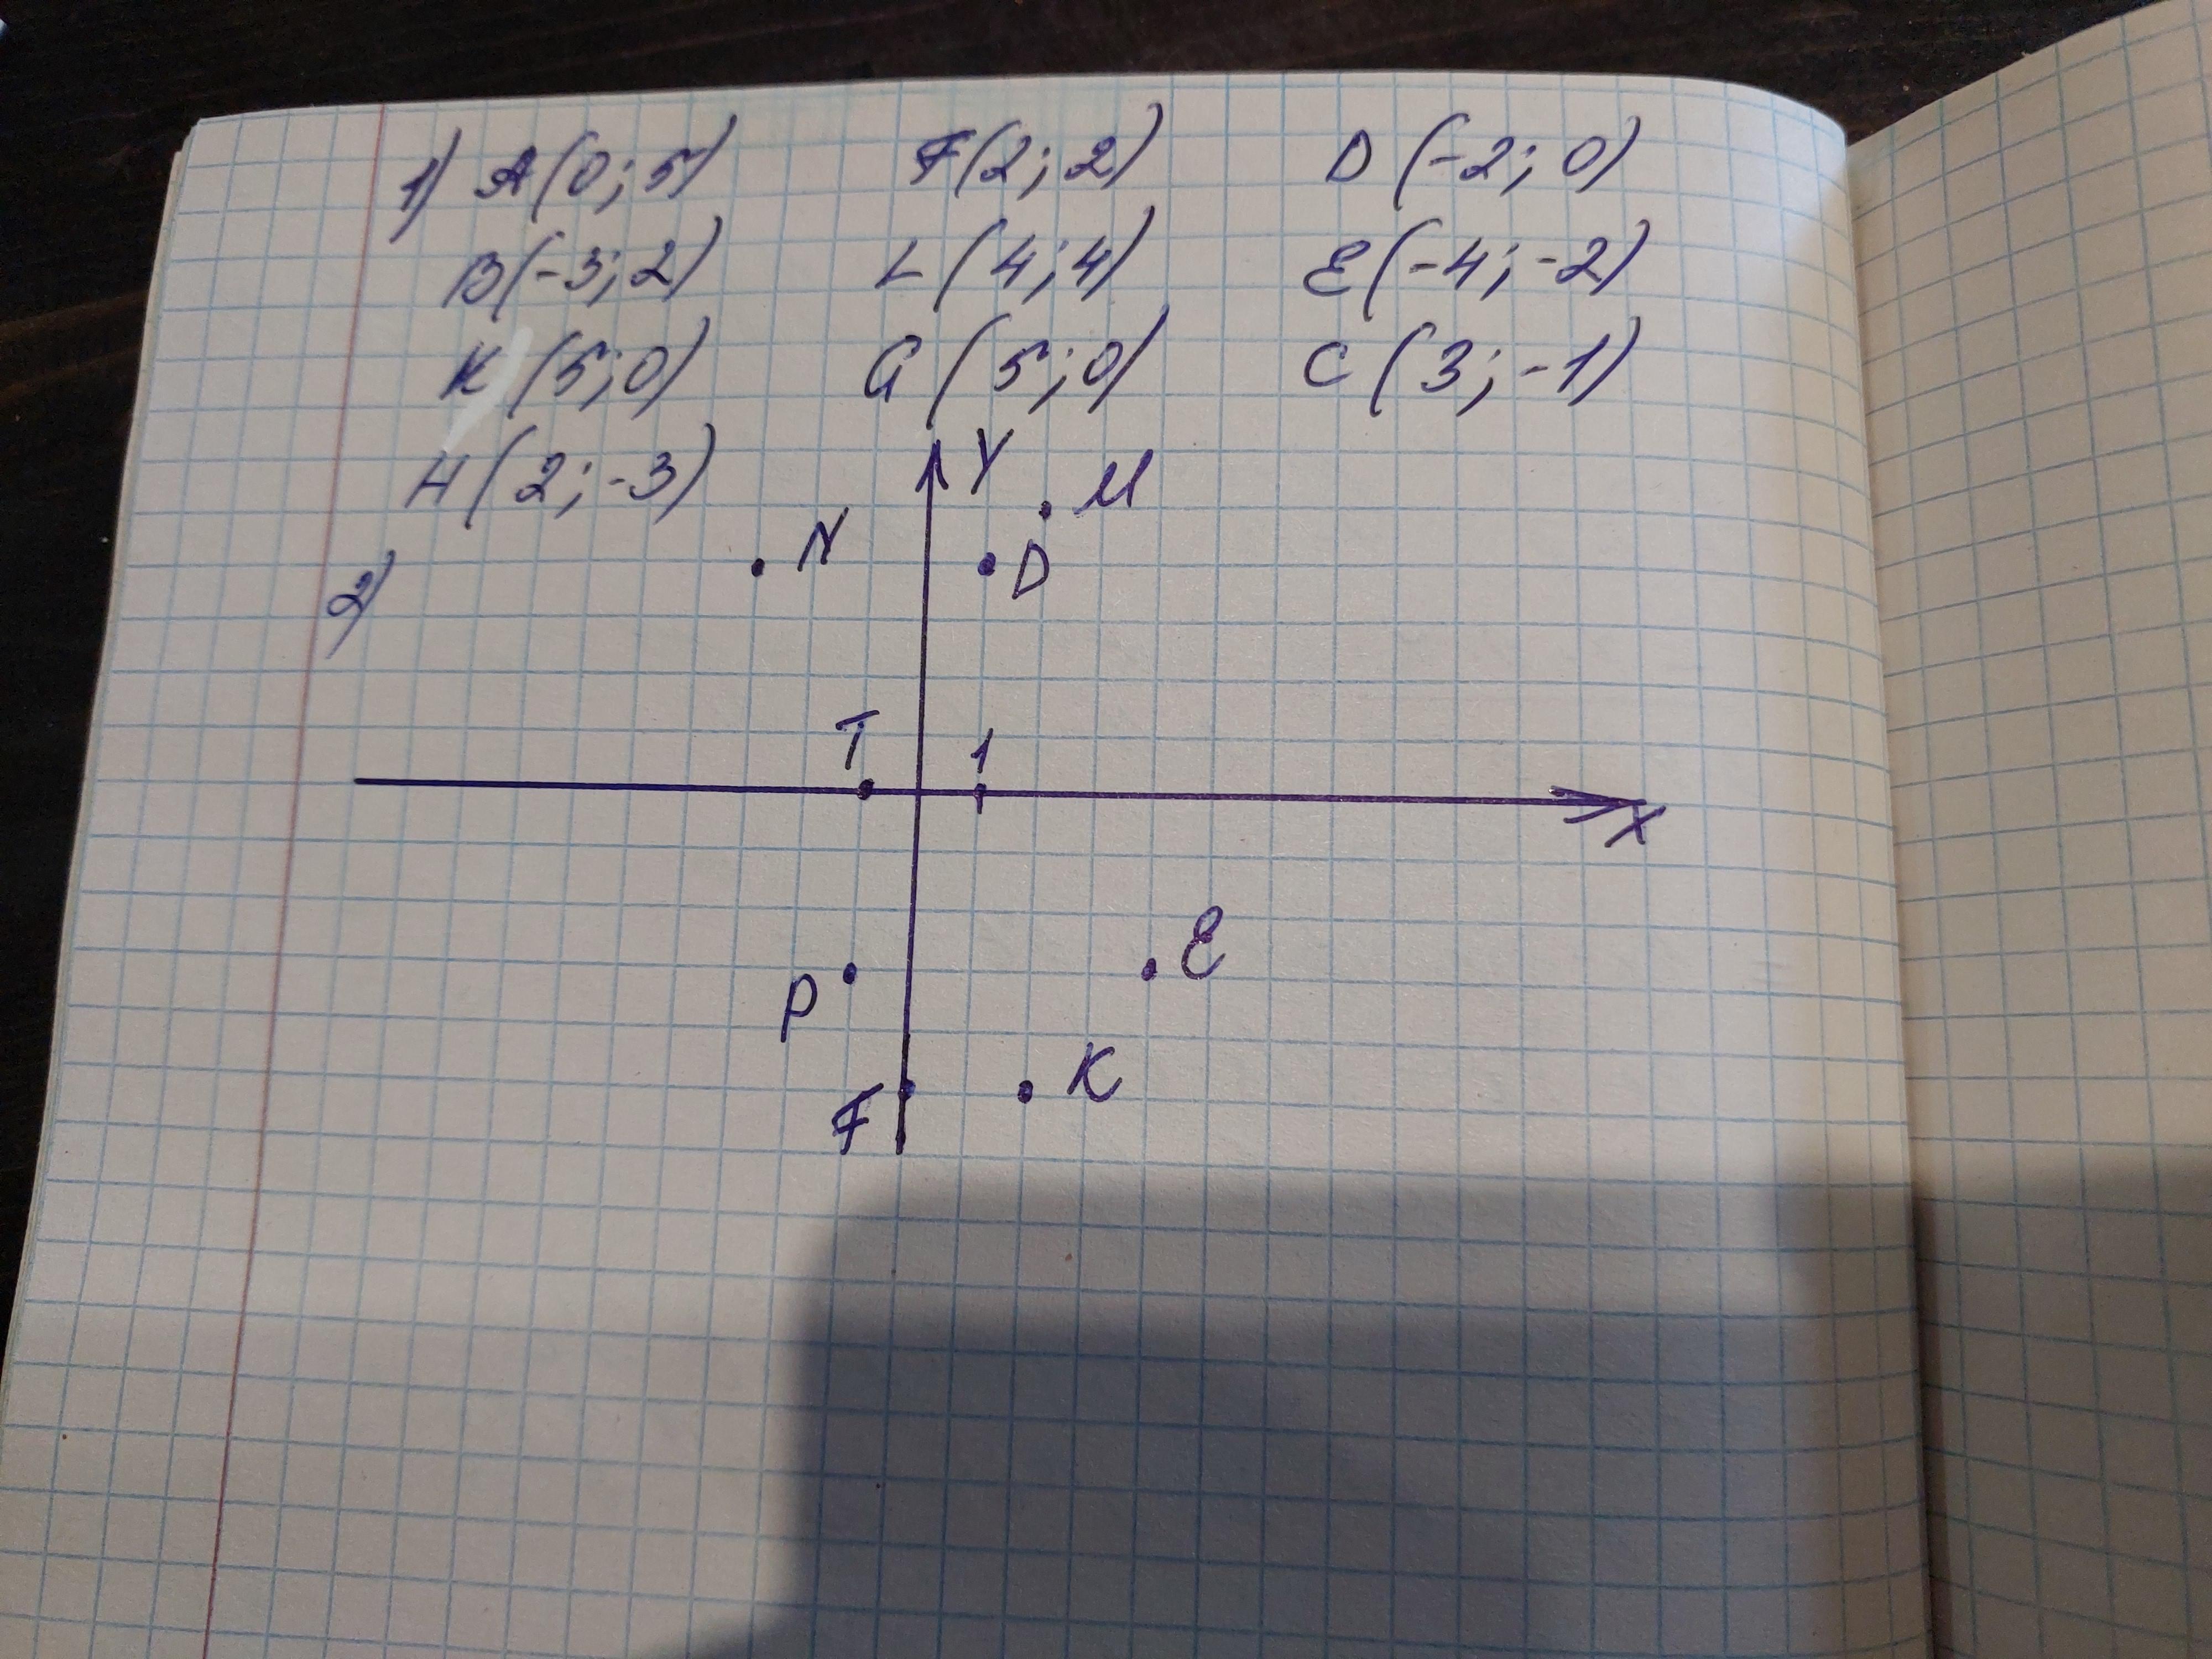 1) A(0;5) F(2;2) D(-2;0)
B(-3;2) L(4;4) E(-4;-2)
K(5;0) G(5;0) C(3;-1)
H(2;-3)
Y
M
N
D
2)
T 1
X
E
P
K
F